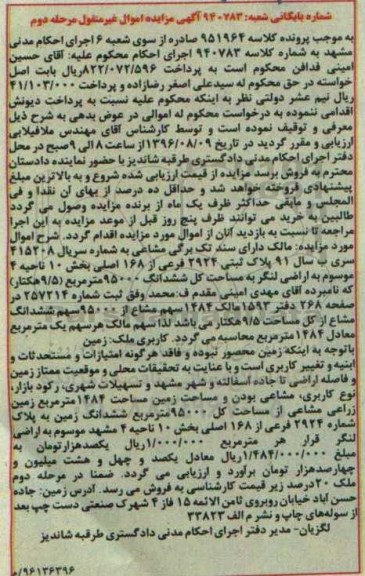 شماره بایگانی شعبه: ۹۴۰۷۸۳ آگهی مزایده اموال غیرمنقول مرحله دوم
به موجب پرونده کلاسه ۹۵۱۹۶۴ صادره از سوی شعبه ۶ اجرای احکام مدنی
مشهد به شماره کلاسه ۹۴۰۷۸۳ اجرای احکام محکوم علیه: آقای حسین
امینی فدافن محکوم است به پرداخت ۸۲۲/۰۷۲/۵۹۶ریال بابت اصل
خواسته در حق محکوم له سیدعلی اصغر رضازاده و پرداخت ۴۱/۱۰۳/۰۰۰
ریال نیم عشر دولتی نظر به اینکه محکوم علیه نسبت به پرداخت دیونش
اقدامی ننموده به درخواست محکوم له اموالی در عوض بدهی به شرح ذیل
معرفی و توقیف نموده است و توسط کارشناس آقای مهندس ملافیلابی
ارزیابی و مقرر گردید در تاریخ ۱۳۹۶/۰۸/۰۹ از ساعت ۸ الی ۹ صبح در محل
دفتر اجرای احکام مدنی دادگستری طرقبه شاندیز با حضور نماینده دادستان
محترم به فروش برسد مزایده از قیمت ارزیابی شده شروع و به بالاترین مبلغ
پیشنهادی فروخته خواهد شد و حداقل ده درصد از بهای آن نقدا و فی
المجلس و مابقی حداکثر ظرف یک ماه از برنده مزایده وصول می گردد
طالبین به خرید می توانند ظرف پنج روز قبل از موعد مزایده به این اجرا
مراجعه تا نسبت به بازدید آنان از اموال مورد مزایده اقدام گردد. شرح اموال
مورد مزایده: مالک دارای سند تک برگی مشاعی به شماره سریال ۴۱۵۲۰۸
سری ب سال ۹۱ پلاک ثبتی ۲۹۲۴ فرعی از ۱۶۸ اصلی بخش ۱۰ ناحیه ۴
موسوم به اراضی لنگر به مساحت کل ششدانگ ۹۵۰۰۰مترمربع (۹/۵هکتار)
که نامبرده آقای مهدی امینی مقدم ف:محمد وفق ثبت شماره ۲۵۷۲۱۴ در
صفحه ۲۶۸ دفتر ۱۵۹۲ مالک ۱۴۸۴سهم مشاع از ۹۵۰۰۰سهم ششدانگ
مشاع از کل مساحت ۹/۵ هکتار می باشد لذا سهم مالک هر سهم یک مترمربع
معادل ۱۴۸۴مترمربع محاسبه می گردد. کاربری ملک: زمین
با توجه به اینکه زمین محصور نبوده و فاقد هرگونه امتیازات و مستحدثات و
ابنیه و تغییر کاربری است و با عنایت به تحقیقات محلی و موقعیت ممتاز زمین
و فاصله اراضی تا جاده آسفالته و شهر مشهد و تسهیلات شهری، رکود بازار،
نوع کاربری، مشاعی بودن و مساحت زمین مساحت ۱۴۸۴مترمربع زمین
زراعی مشاعی از مساحت کل ۹۵۰۰۰مترمربع ششدانگ زمین به پلاک
شماره ۲۹۲۴ فرعی از ۱۶۸ اصلی بخش ۱۰ ناحیه ۴ مشهد موسوم به اراضی
لنگر قرار هر مترمربع ۱/۰۰۰/۰۰۰ریال یکصدهزارتومان به
مبلغ ۱/۴۸۴/۰۰۰/۰۰۰ریال معادل یکصد و چهل و هشت میلیون و
چهارصدهزار تومان برآورد و ارزیابی می گردد. ضمنا در مرحله دوم
ملک ۲۰درصد زیر قیمت کارشناسی به فروش می رسد. آدرس زمین: جاده
حسن آباد خیابان روبروی ثامن الائمه ۱۵ فاز ۴ شهرک صنعتی دست چپ بعد
از سوله‌های چاپ و نشر م الف ۳۳۸۲۳
لگزیان- مدیر دفتر اجرای احکام مدنی دادگستری طرقبه شاندیز
۹۶۱۳۶۳۹۶/م